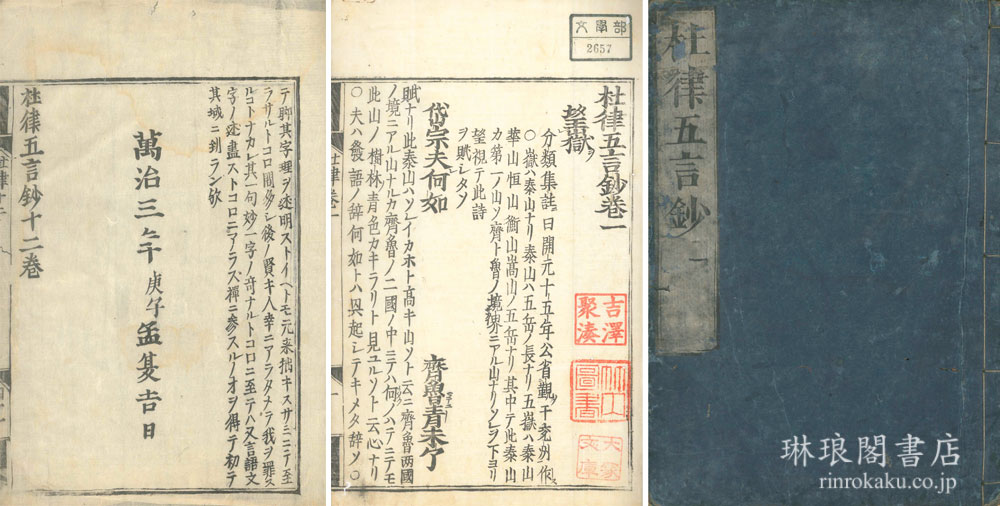 テ脚其字理ヲ述明ストイヘトモ元来拙キスサミニテ至
ラサルトコロ間多シ後ノ賢キ人幸ニアラタメテ我ヲ罪ス
ルコトナカレ其一句妙一字ノ奇ナルトコロニ至テハ又言語文
字ノ述盡ストコロニアラス禪ニ参スルノオヲ得テ初テ
其域ニ到ラン欤
萬治三年庚子孟夏吉日
杜律五言鈔十二巻
文學部
2657
杜律五言鈔巻一
望嶽
分類集註曰開元十五年公省觀于兖州作
○嶽ハ泰山ナリ泰山ハ五岳ノ長ナリ五嶽ハ泰山
華山恒山衡山嵩山ノ五岳ナリ其中テ此泰山
カ第一ノ山ソ齊ト魯ノ境界ニアル山ナリソレヲ下ヨリ
望視テ此詩
ヲ賦シタソ
岱宗夫何如
齊魯青未了
賦ナリ此泰山ハソレイカホト高キ山ソト云ニ齊魯両國
ノ境ニアル山ナルカ齊魯ノ二國ノ中ニテハ何ノハテニテモ
此山ノ樹林青色カキラリト見ユルソト云心ナリ
○夫ハ發語ノ辞何如トハ興起シテキメタ辞ソ○
吉澤
聚湊
竹山
圖書
文庫
杜律五言鈔 一
琳琅閣書店
rinrokaku.co.jp